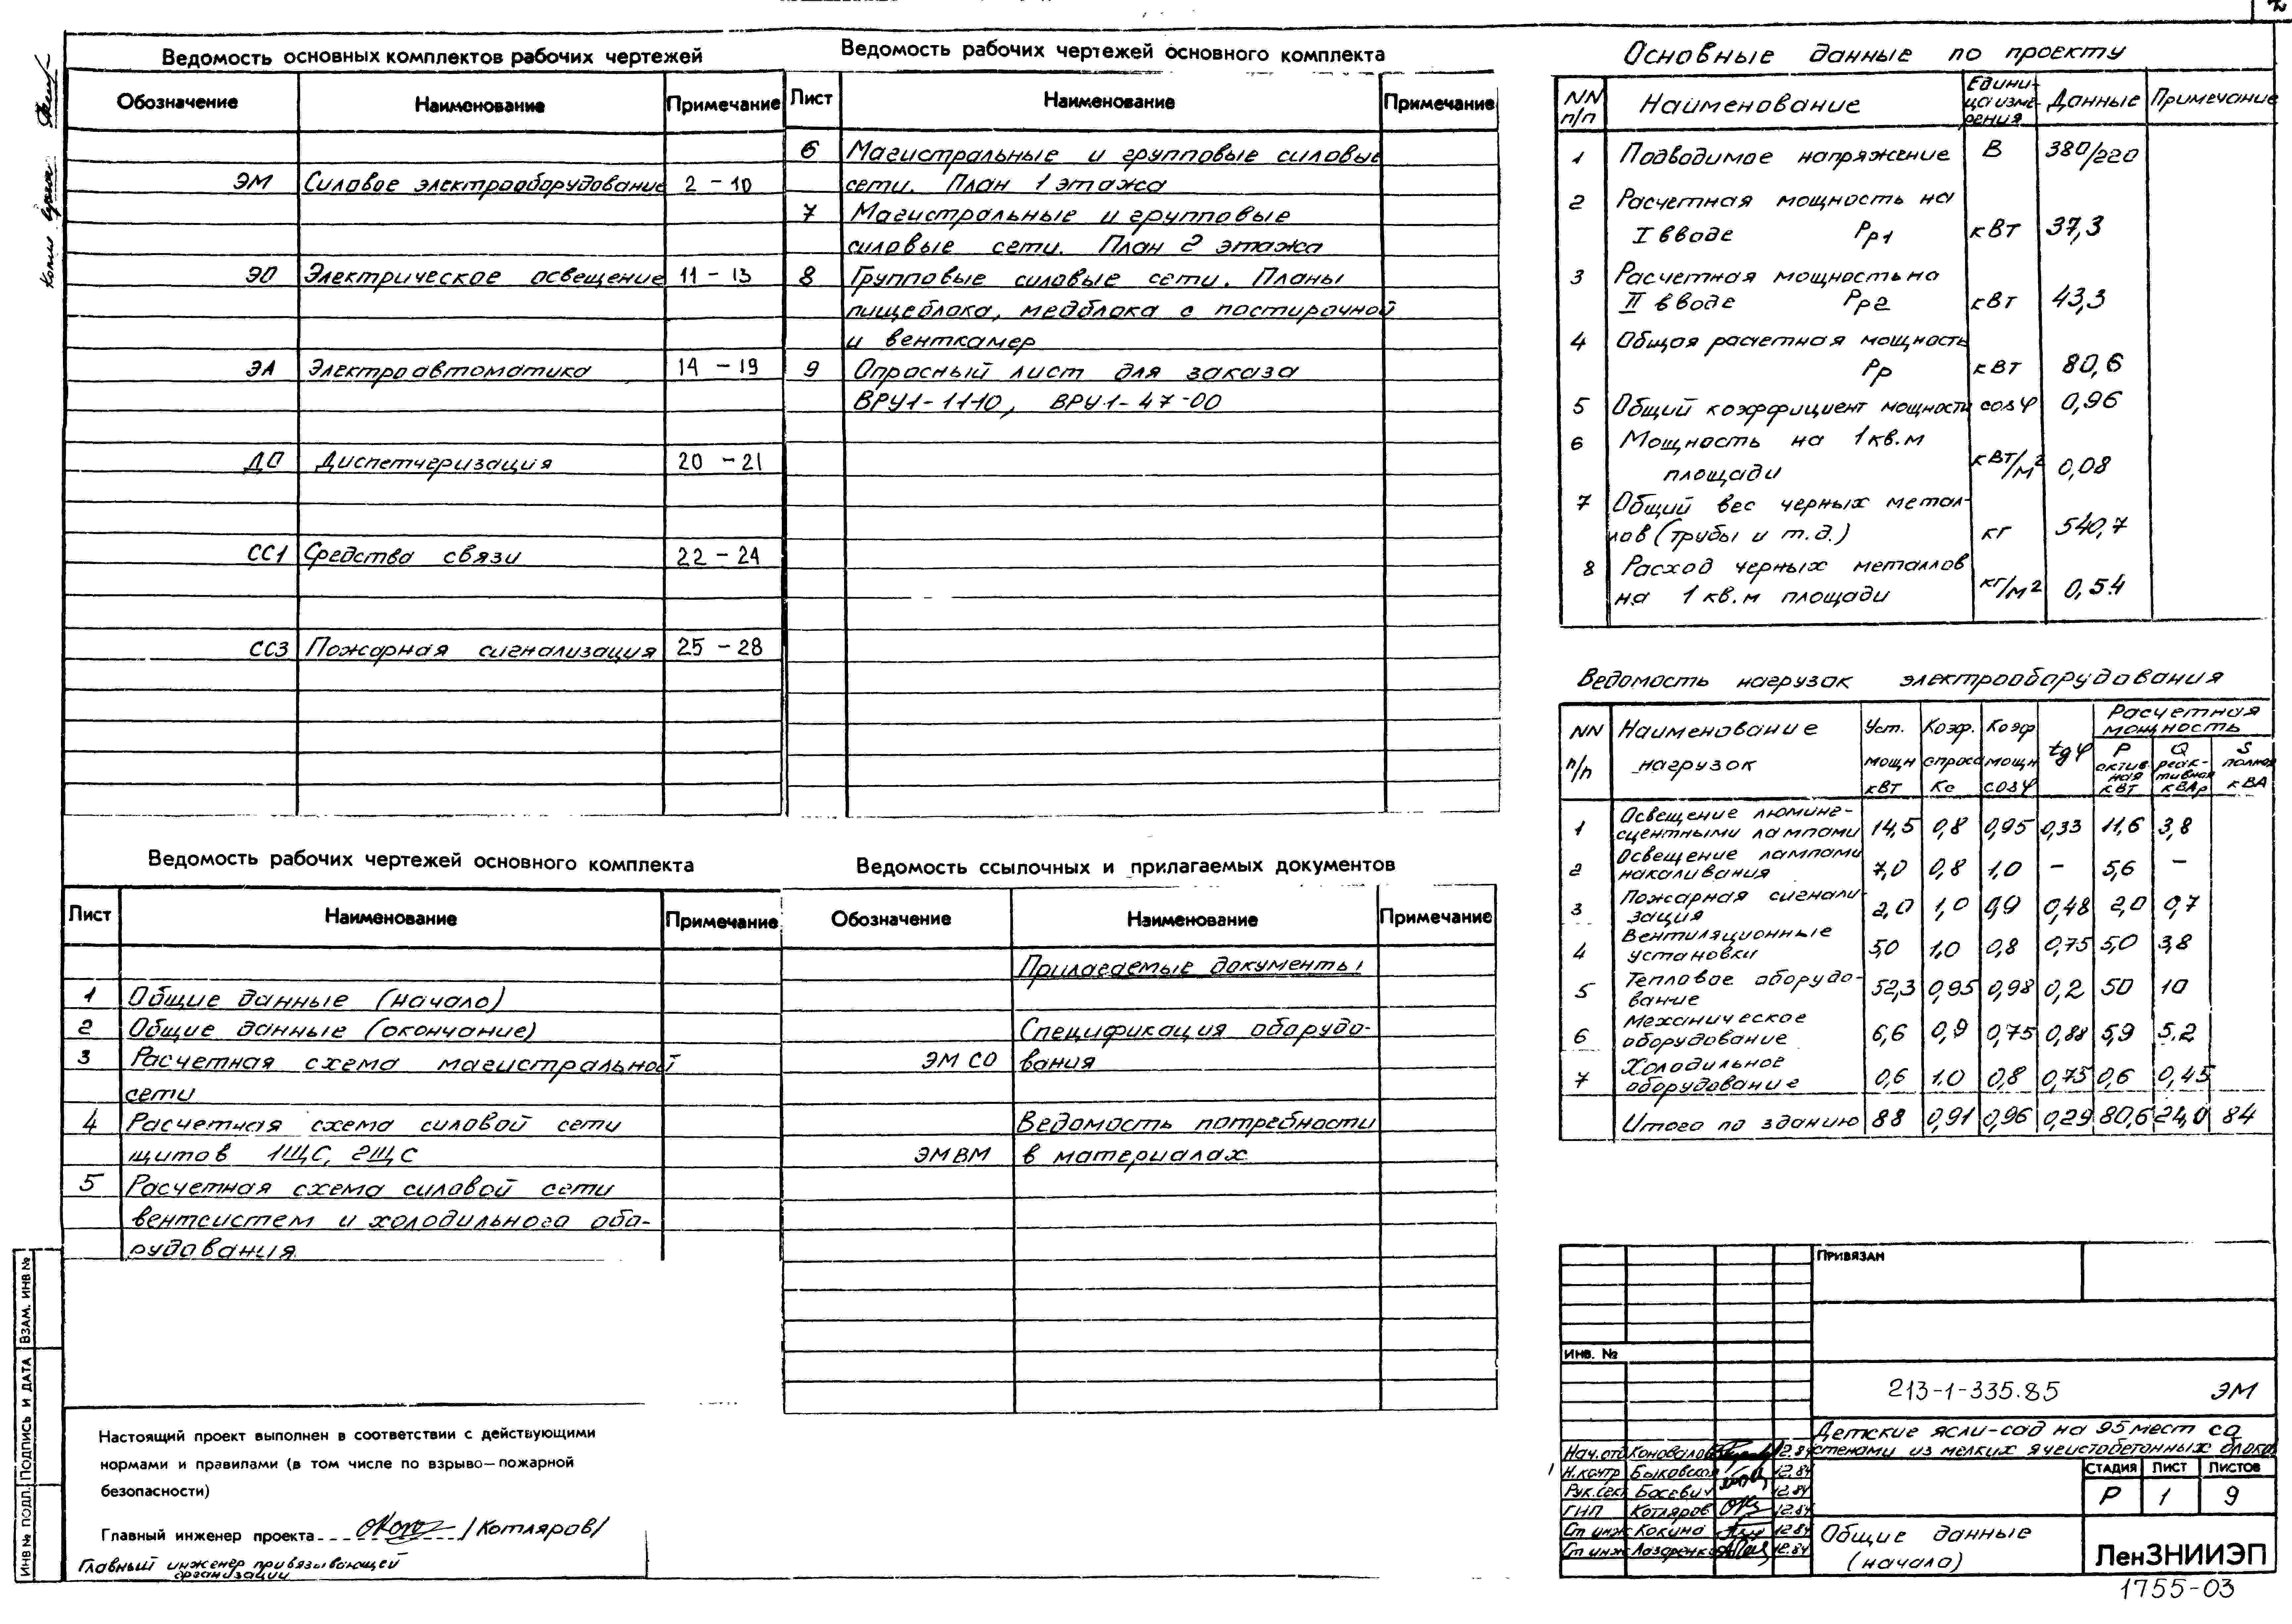 2
Ведомость основных комплектов рабочих чертежей
Обозначение Наименование Примечание
ЭМ Силовое электрооборудование 2 - 10
ЭО Электрическое освещение 11 - 13
ЭА Электроавтоматика 14 - 19
ДО Диспетчеризация 20 - 21
СС1 Средства связи 22 - 24
СС3 Пожарная сигнализация 25 - 28
Ведомость рабочих чертежей основного комплекта
Лист Наименование Примечание
6 Магистральные и групповые силовые
сети. План 1 этажа
7 Магистральные и групповые
силовые сети. План 2 этажа
8 Групповые силовые сети. Планы
пищеблока, медблока с постирочной
и венткамер
9 Опросный лист для заказа
ВРУ1-11-10, ВРУ1-47-00
Ведомость рабочих чертежей основного комплекта
Лист Наименование Примечание
1 Общие данные (начало)
2 Общие данные (окончание)
3 Расчетная схема магистральной
сети
4 Расчетная схема силовой сети
щитов 1ЩС, 2ЩС
5 Расчетная схема силовой сети
вентсистем и холодильного обо-
рудования
Ведомость ссылочных и прилагаемых документов
Обозначение Наименование Примечание
Прилагаемые документы
Спецификация оборудо-
ЭМ СО вания
Ведомость потребности
ЭМ ВМ в материалах
Настоящий проект выполнен в соответствии с действующими
нормами и правилами (в том числе по взрыво-пожарной
безопасности)
Главный инженер проекта /Котляров/
Главный инженер привязывающей
организации
Основные данные по проекту
NN п/п Наименование Едини-ца изме-рения Данные Примечание
1 Подводимое напряжение В 380/220
2 Расчетная мощность на
I вводе Рр1 кВт 37,3
3 Расчетная мощность на
II вводе Рр2 кВт 43,3
4 Общая расчетная мощность
Рр кВт 80,6
5 Общий коэффициент мощности cosφ 0,96
6 Мощность на 1 кв.м
площади кВт/м2 0,08
7 Общий вес черных метал-
лов (трубы и т.д.) кг 540,7
8 Расход черных металлов
на 1 кв.м площади кг/м2 0,54
Ведомость нагрузок электрооборудования
NN п/п Наименование нагрузок Уст. мощн кВт Коэф. спроса Кс Коэф мощн cosφ tgφ Расчетная мощность
Р активная кВт Q реак-тивная кВАр S полная кВА
1 Освещение люмине-
сцентными лампами 14,5 0,8 0,95 0,33 11,6 3,8
2 Освещение лампами
накаливания 7,0 0,8 1,0 - 5,6 -
3 Пожарная сигнали-
зация 2,0 1,0 0,9 0,48 2,0 0,7
4 Вентиляционные
установки 5,0 1,0 0,8 0,75 5,0 3,8
5 Тепловое оборудо-
вание 52,3 0,95 0,98 0,2 50 10
6 Механическое
оборудование 6,6 0,9 0,75 0,88 5,9 5,2
7 Холодильное
оборудование 0,6 1,0 0,8 0,75 0,6 0,45
Итого по зданию 88 0,91 0,96 0,29 80,6 24,0 84
Привязан
Инв. №
213-1-335.85 ЭМ
Детские ясли-сад на 95 мест со
стенами из мелких ячеистобетонных блоков
Нач.отд Коновалов 12.84
Н.контр Быковская 12.84
Рук.сек Басевич 12.84
ГИП Котляров 12.84
Ст инж Кокина 12.84
Ст инж Лазаренко 12.84
Стадия Лист Листов
Р 1 9
Общие данные
(начало)
ЛенЗНИИЭП
1755-03
Инв № подл. Подпись и дата Взам. инв №